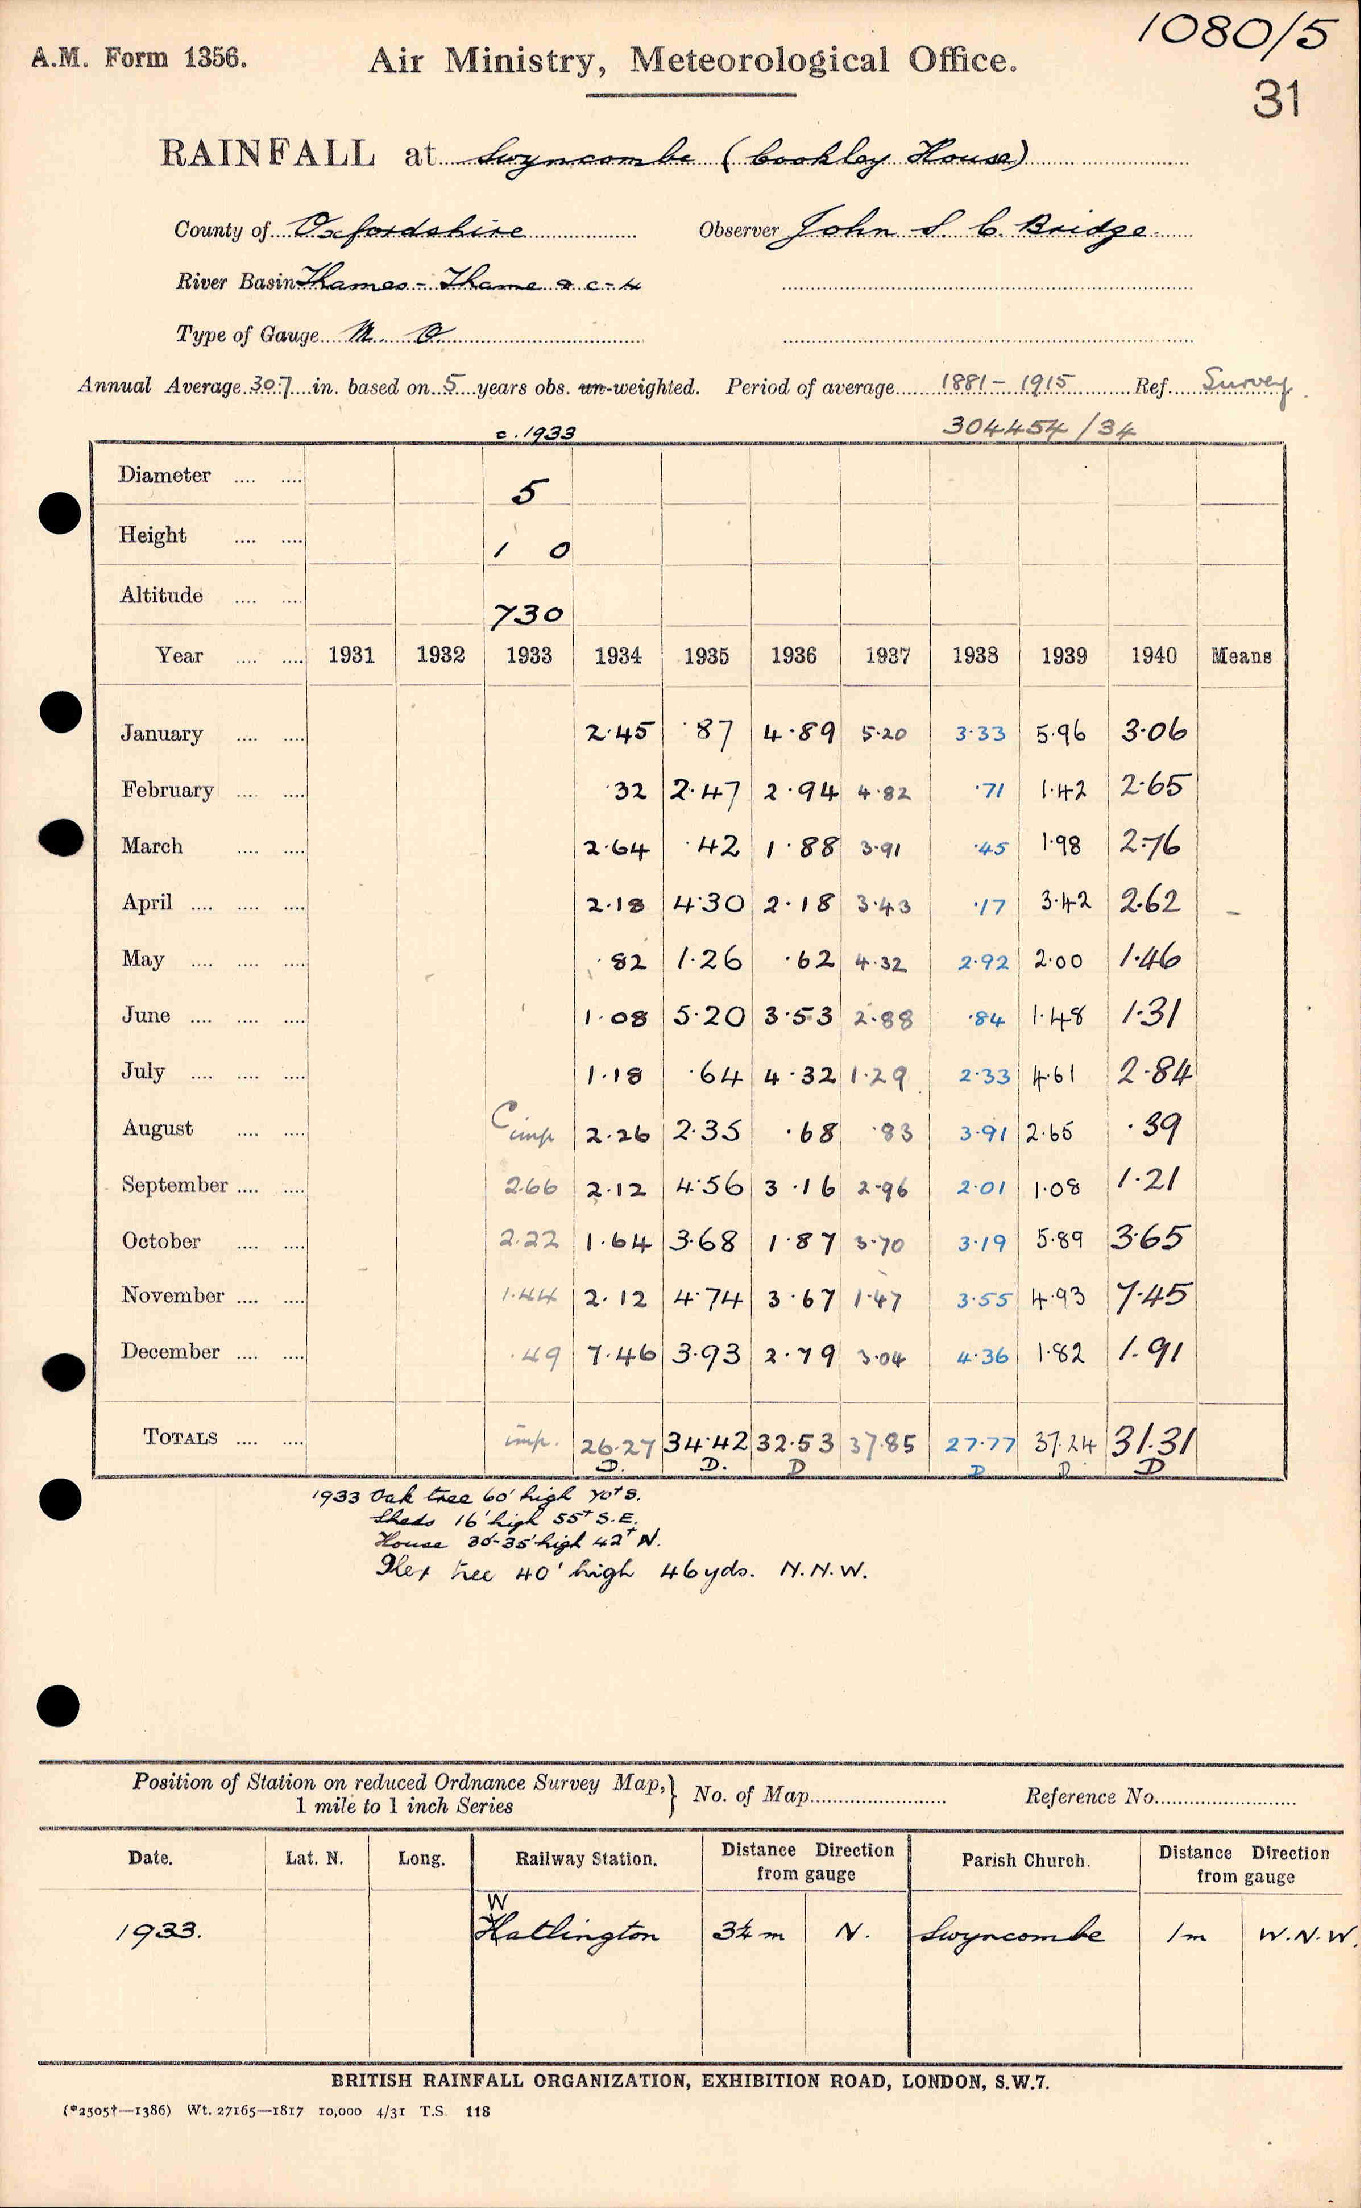 1080/5
A.M. Form 1356. Air Ministry, Meteorological Office.
31
RAINFALL at Swyncombe (Cookley House)
County of Oxfordshire Observer John S C Bridge
River Basin Thames - Thame & c - 4
Type of Gauge M. O
Annual Average 30.7 in. based on 5 years obs. un-weighted. Period of average 1881 - 1915 Ref. Survey
c. 1933 304454/34
Diameter 5
Height 1 0
Altitude 730
Year 1931 1932 1933 1934 1935 1936 1937 1938 1939 1940 Means
January 2.45 .87 4.89 5.20 3.33 5.96 3.06
February .32 2.47 2.94 4.82 .71 1.42 2.65
March 2.64 .42 1.88 3.91 .45 1.98 2.76
April 2.18 4.30 2.18 3.43 .17 3.42 2.62
May .82 1.26 .62 4.32 2.92 2.00 1.46
June 1.08 5.20 3.53 2.88 .84 1.48 1.31
July 1.18 .64 4.32 1.29 2.33 4.61 2.84
August imp 2.26 2.35 .68 .83 3.91 2.65 .39
September 2.66 2.12 4.56 3.16 2.96 2.01 1.08 1.21
October 2.22 1.64 3.68 1.87 3.70 3.19 5.89 3.65
November 1.44 2.12 4.74 3.67 1.47 3.55 4.93 7.45
December .49 7.46 3.93 2.79 3.04 4.36 1.82 1.91
TOTALS imp. 26.27 34.42 32.53 37.85 27.77 37.24 31.31
D. D. D D D D
1933 Oak tree 60' high 70+ S.
Sheds 16' high 55+ S.E.
House 30-35' high 42+ N.
Ilex tree 40' high 46 yds. N.N.W.
Position of Station on reduced Ordnance Survey Map,
1 mile to 1 inch Series } No. of Map Reference No.
Date. Lat. N. Long. Railway Station. Distance Direction from gauge Parish Church. Distance Direction from gauge
W
1933. Hatlington 3¼ m N. Swyncombe 1 m W.N.W.
BRITISH RAINFALL ORGANIZATION, EXHIBITION ROAD, LONDON, S.W.7.
(*2505†—1386) Wt. 27165—1817 10,000 4/31 T.S. 118